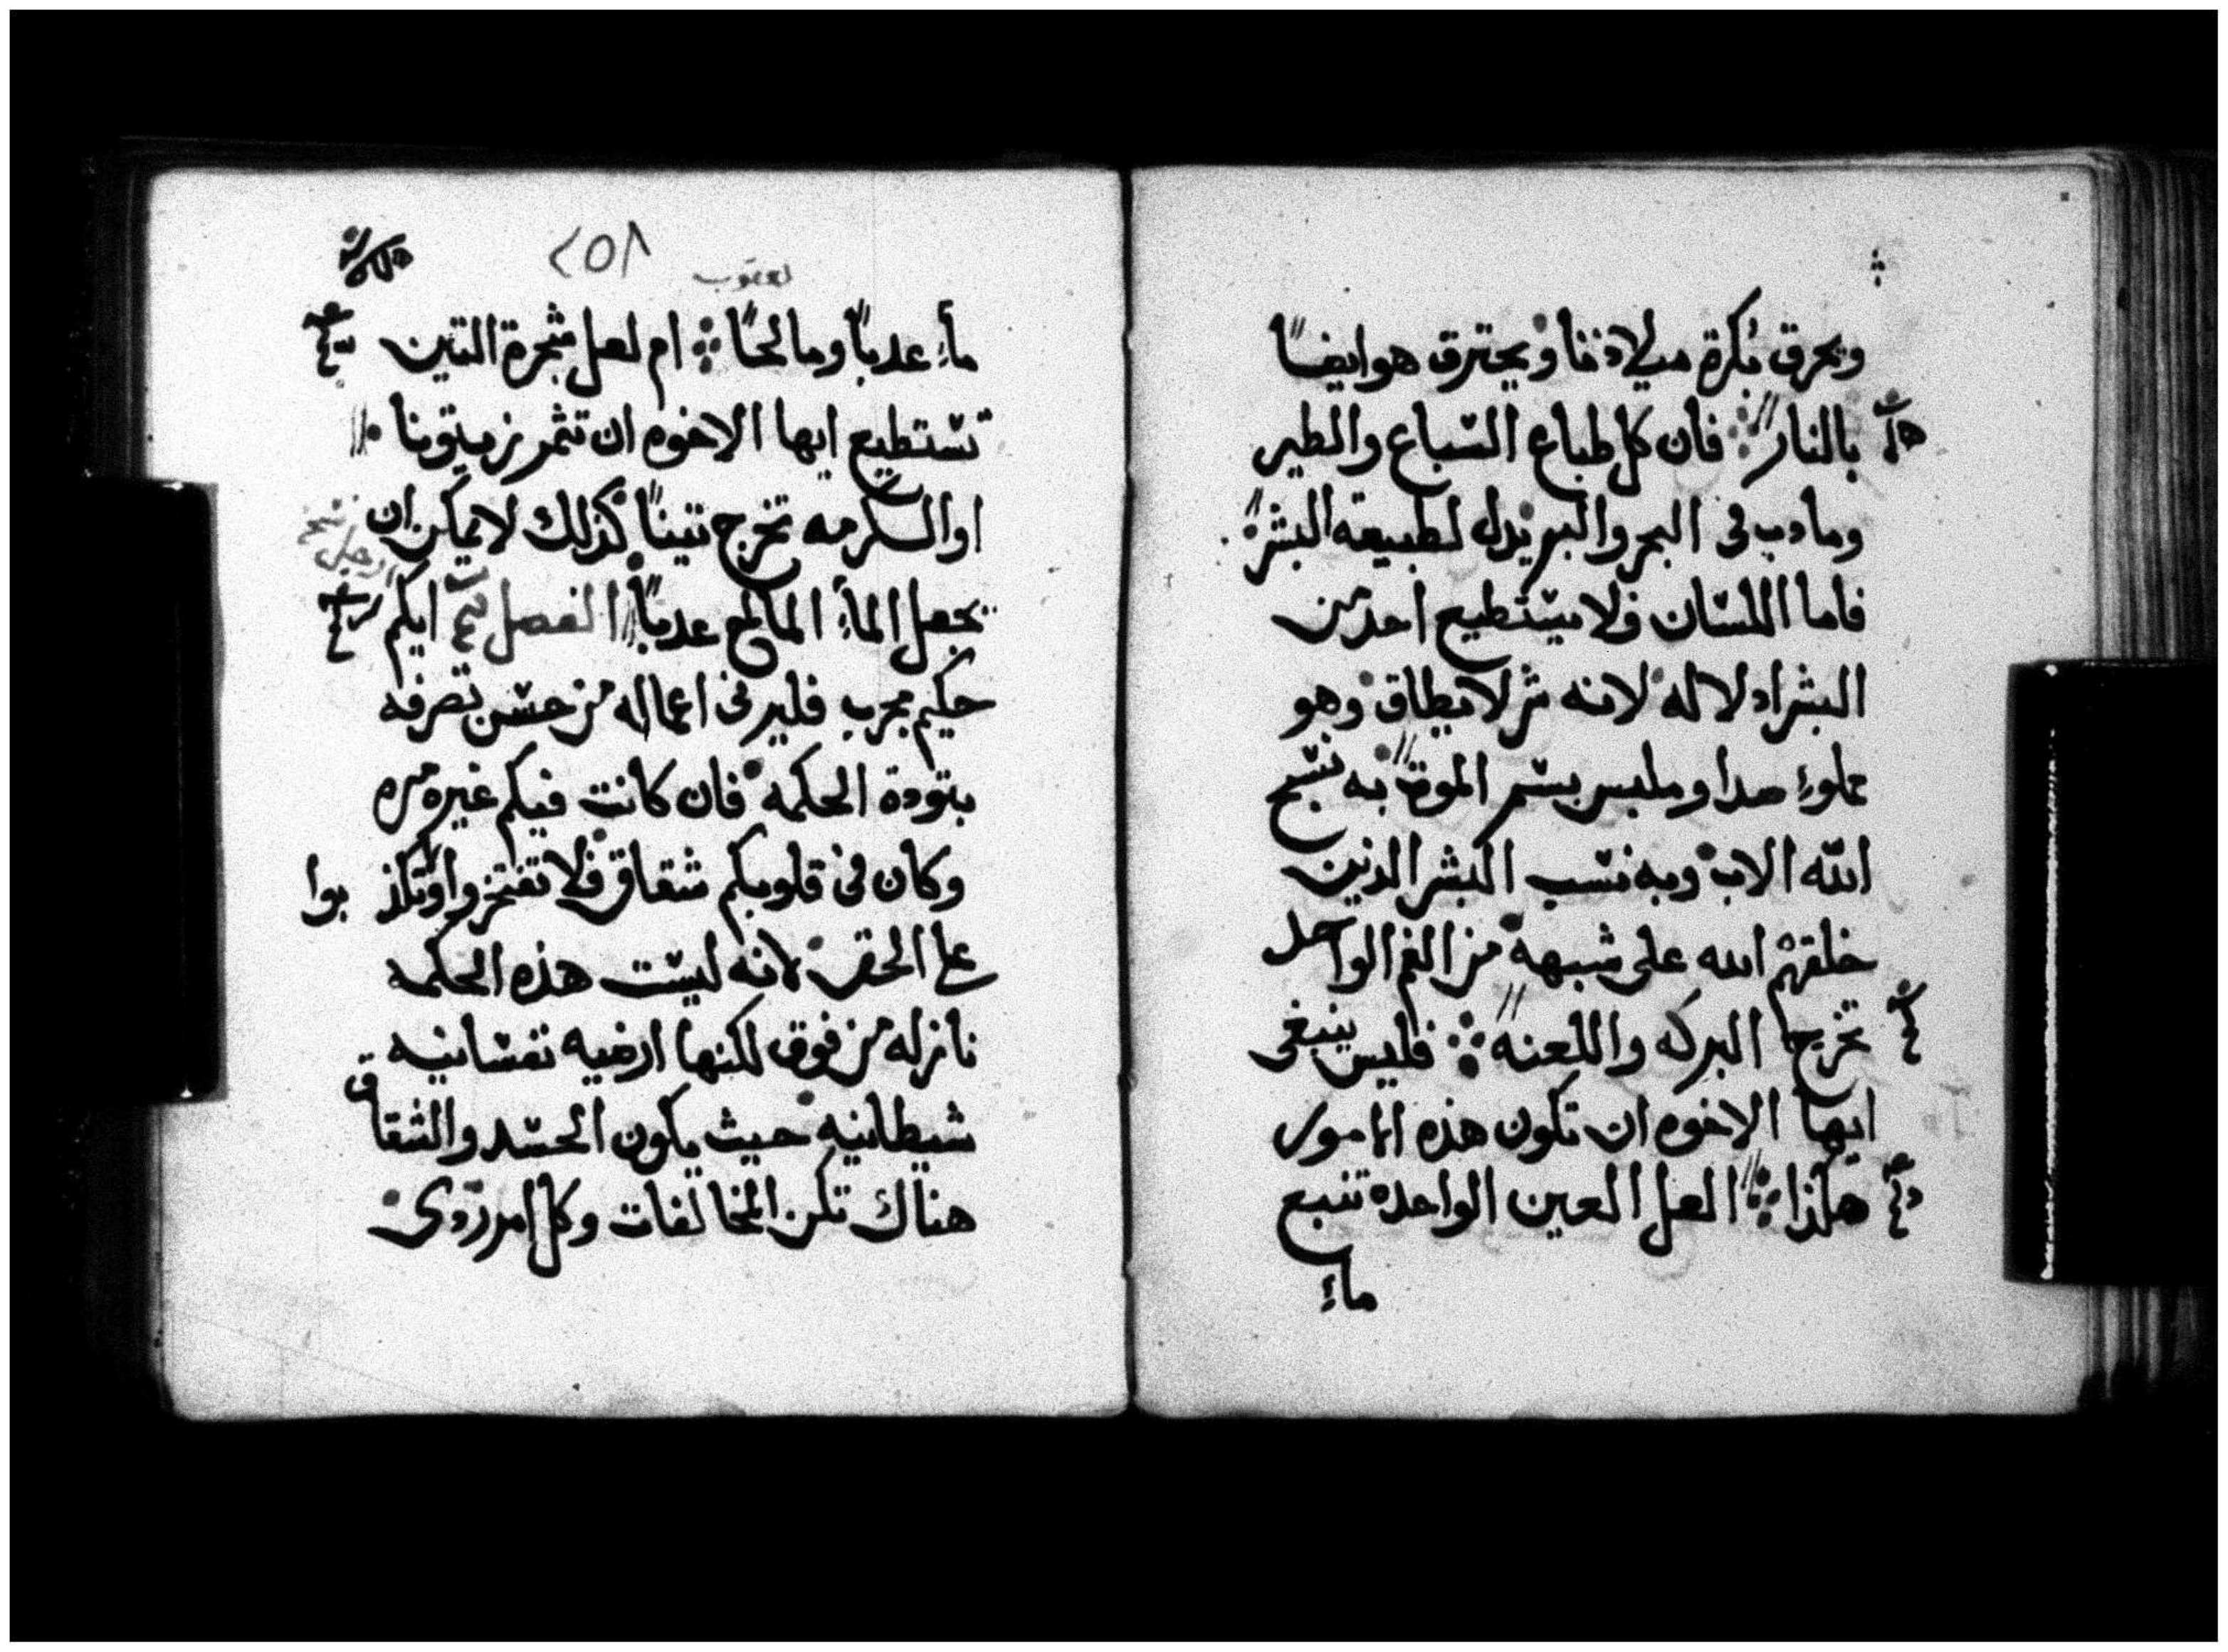 ويحرق بكرة ميلادنا ويحترق هو ايضًا
بالنار فان كل طباع السباع والطير
وما دب فى البحر والبر يذل لطبيعه البشر
فاما اللسان فلا يستطيع احد من
البشر اذلاله لانه شر لا يطاق وهو
مملوء صدا وملبس بسم الموت به نسبح
الله الاب وبه نسب البشر الذين
خلقهم الله على شبهه من الفم الواحد
تخرج البركه واللعنه فليس ينبغى
ايها الاخوه ان تكون هذه الامور
هكذا العل العين الواحده تنبع
ماء
٢٥٨
يعقوب
ماء عدبًا ومالحًا ام لعل شجرة التين
تستطيع ايها الاخوه ان تثمر زيتونا
او الكرمه تخرج تينًا كذلك لا يمكن ان
تجعل الماء المالح عدبًا الفصل ايكم
حكيم مجرب فلير فى اعماله من حسن تصرفه
بتودة الحكمه فان كانت فيكم غيره مره
وكان فى قلوبكم شقاق فلا تفتخروا وتكذبوا
على الحق لانه ليست هذه الحكمه
نازله من فوق لكنها ارضيه نفسانيه
شيطانيه حيث يكون الحسد والشقاق
هناك تكن المخالفات وكل امر ردى